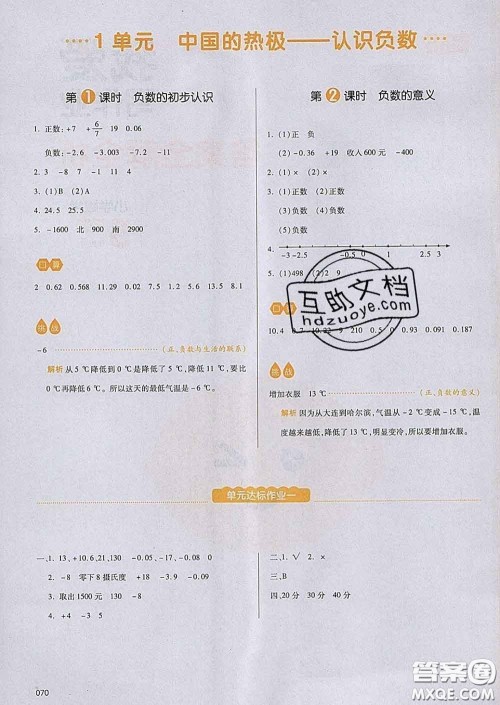 1 单元 中国的热极——认识负数
第 1 课时 负数的初步认识
1. 正数：+7 +6/7 19 0.06
负数：-2.6 -3.003 -7.2 -11
2. 3 -8 7 -1 11 4
3. (1)B (2)A
4. 24.5 25.5
5. -1600 北 900 南 2900
口算
2 0.62 0.568 11.29 0.02 7.5 1.2 13.5 8.1
挑战
-6 (正、负数与生活的联系)
解析 从 5 ℃降低到 0 ℃是降低了 5 ℃，降低 11 ℃，要比
0 ℃再降低 6 ℃。所以这天的最低气温是 -6 ℃。
第 2 课时 负数的意义
1. (1)正 负
(2)-40 -126 +24 收入 600 元 -400 元
2. (1)× (2)×
3. (1)正数 (2)正数
(3)负数 (4)正数
4.
-3 -2.5 -1 0 1 2.5 3
5. (1)498 (2)2 9
口算
10.4 9.7 10.22 9 210 0.5 0 0.93 0.091 0.187
挑战
增加衣服 13 ℃ (正、负数的意义)
解析 因为从大连到哈尔滨，气温从 -2 ℃变成 -15 ℃，温
度越来越低，降低了 13 ℃，明显变冷，所以要增加衣服。
单元达标作业一
一、1. 13，+10.6，21，130 -0.05，-17，-0.09 0
2. -8 零下 8 摄氏度
3. 取出 1500 元 130
4. +4 -3 5
二、√ 2. ×
三、B
四、20分 30分 40分
070
互助文档
hdzuoye.com
答案圈
MXQE.COM